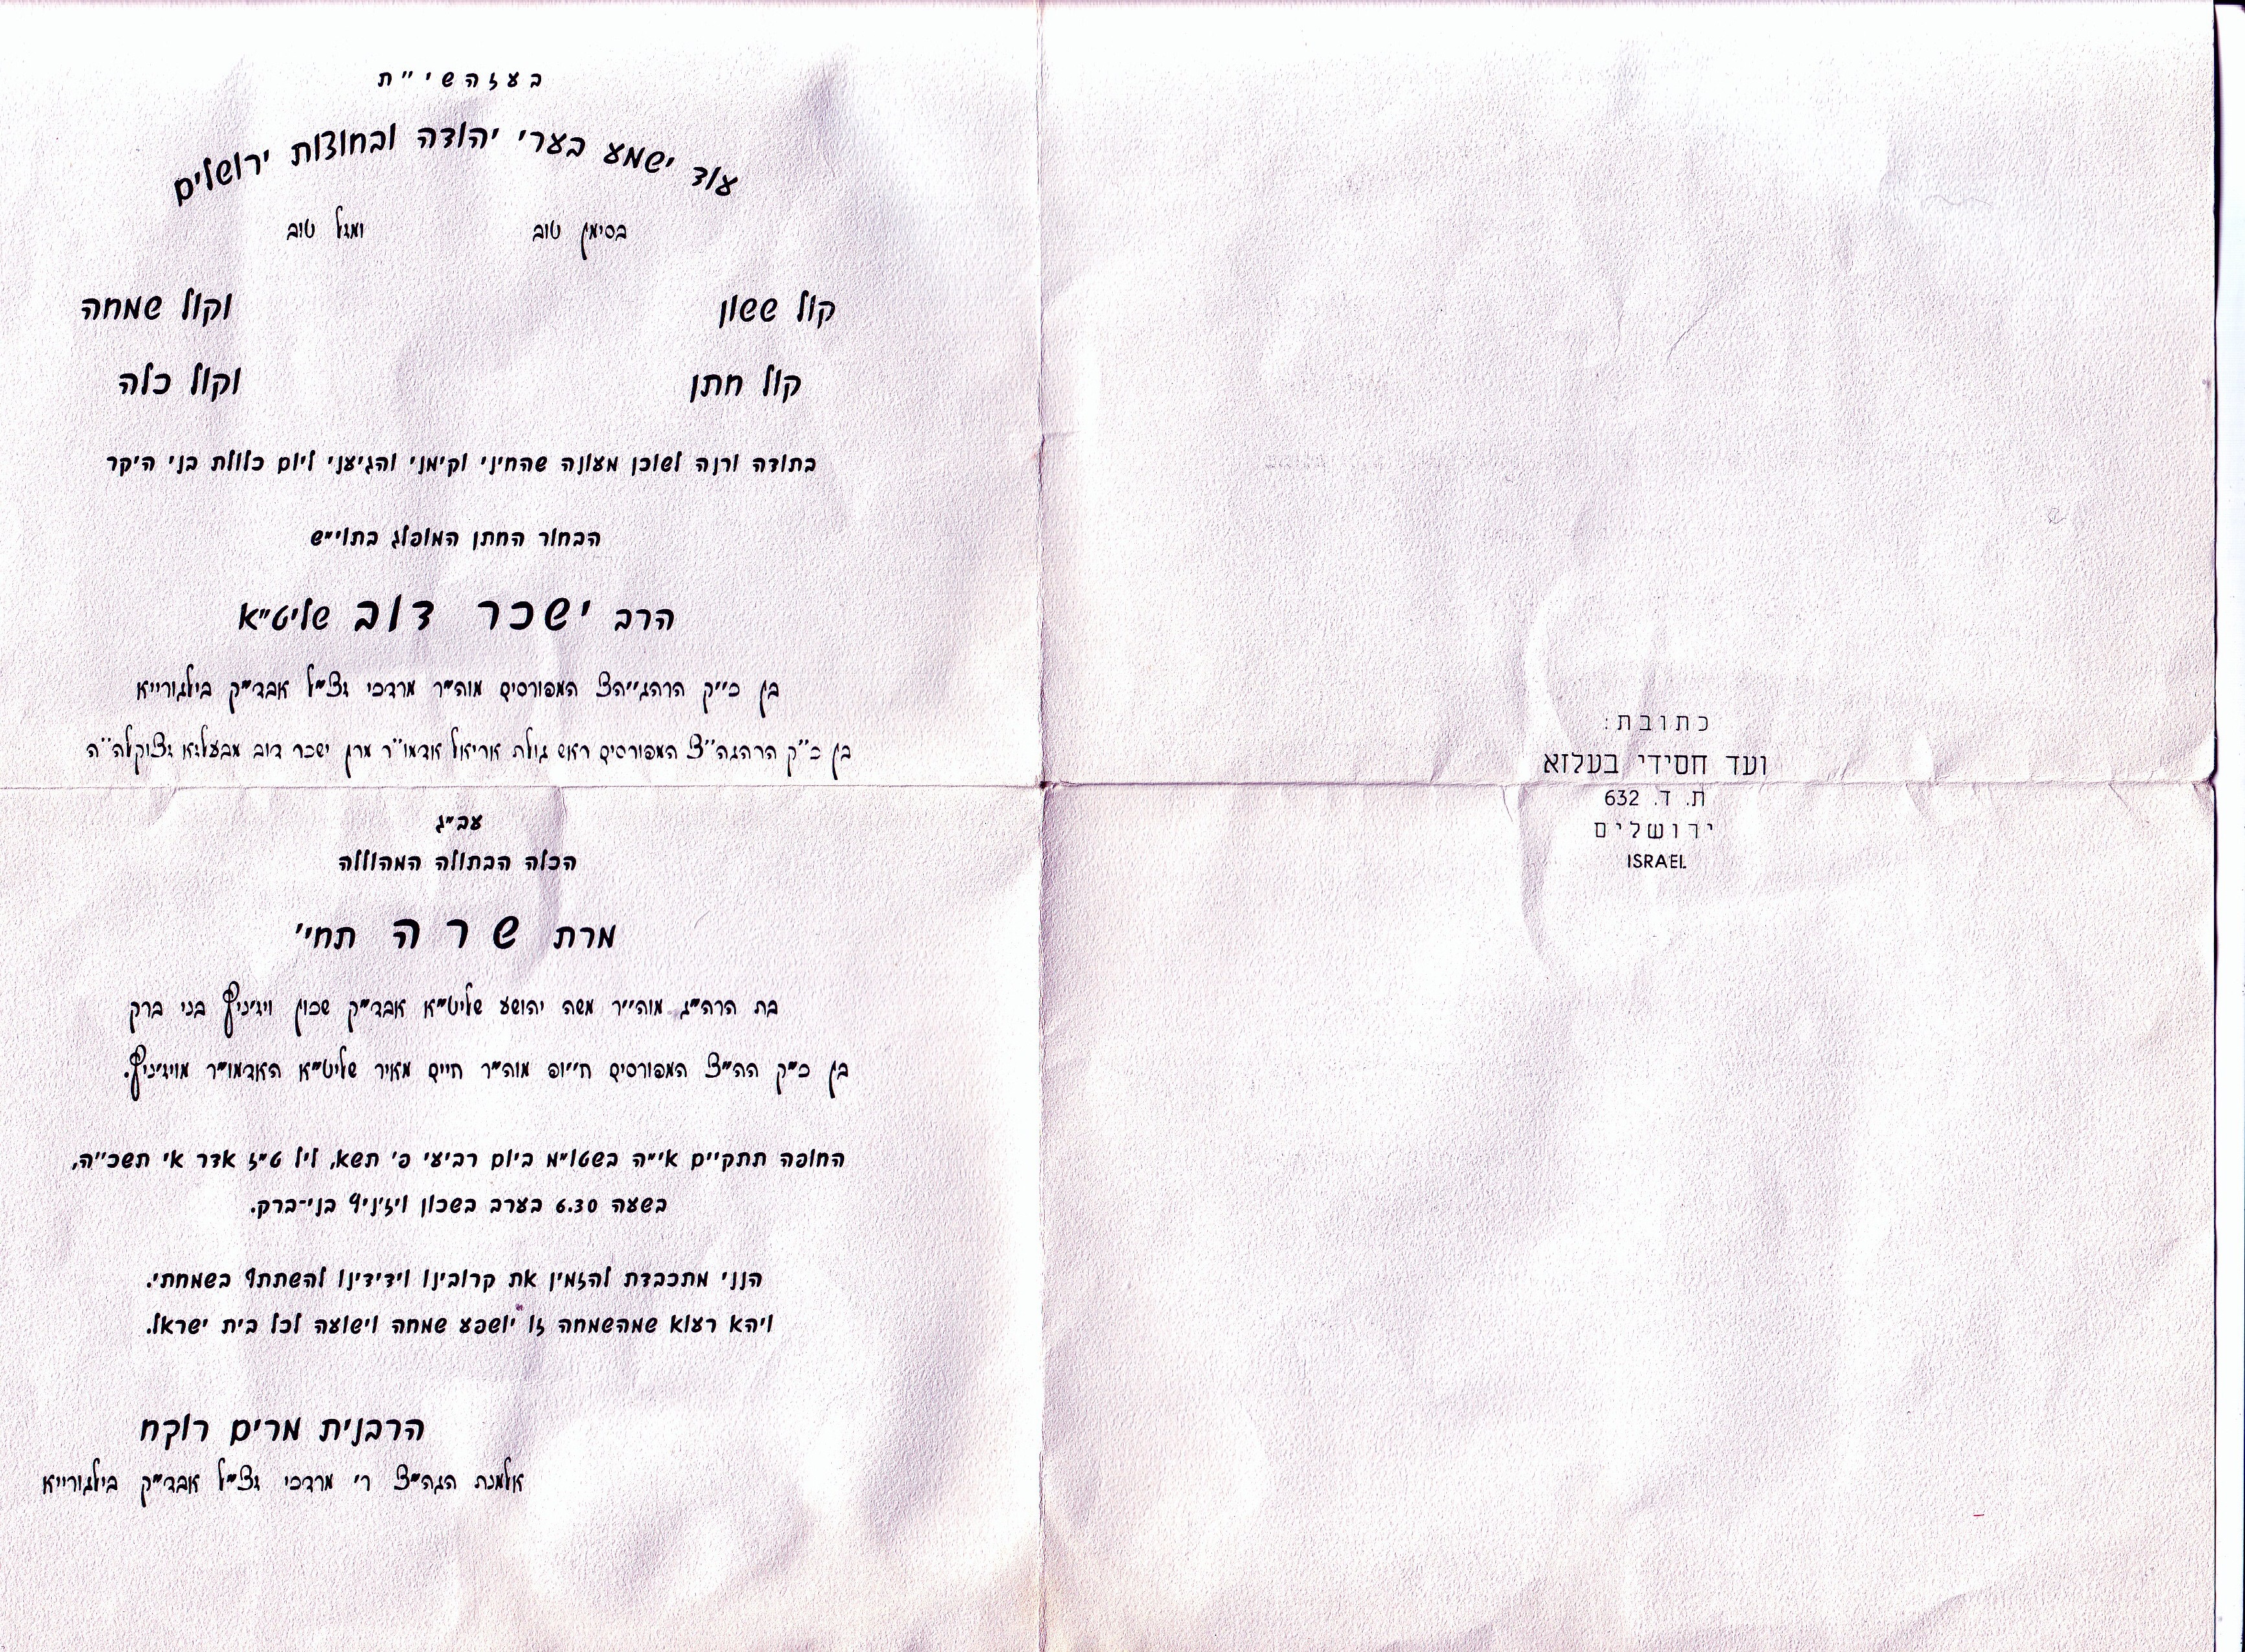 בעזהשי״ת
עוד ישמע בערי יהודה ובחוצות ירושלים
בסימן טוב ומזל טוב
קול ששון וקול שמחה
קול חתן וקול כלה
בתודה ורנה לשוכן מעונה שהחיני וקימני והגיעני ליום כלולת בני היקר
הבחור החתן המופלג בתוי״ש
הרב ישכר דוב שליט״א
בן כ״ק הרהג״הצ המפורסים מוה״ר מרדכי זצ״ל אבד״ק בילגורייא
בן כ״ק הרהגה״צ המפורסים ראש גולת אריאל אדמו״ר מרן ישכר דוב מבעלזא זצוקלה״ה
עב״ג
הכלה הבתולה המהוללה
מרת שרה תחי׳
בת הרה״ג מוה״ר משה יהושע שליט״א אבד״ק שכון ויזניץ בני ברק
בן כ״ק הה״צ המפורסים ח״ופ מוה״ר חיים מאיר שליט״א האדמו״ר מויזניץ.
החופה תתקיים אי״ה בשטו״מ ביום רביעי פ׳ תשא, ליל ט״ז אדר א׳ תשכ״ה,
בשעה 6.30 בערב בשכון ויזניץ בני־ברק.
הנני מתכבדת להזמין את קרובינו וידידינו להשתתף בשמחתי.
ויהא רעוא שמהשמחה זו יושפע שמחה וישועה לכל בית ישראל.
הרבנית מרים רוקח
אלמנת הגה״צ ר׳ מרדכי זצ״ל אבד״ק בילגורייא
כתובת:
ועד חסידי בעלזא
ת. ד. 632
ירושלים
ISRAEL